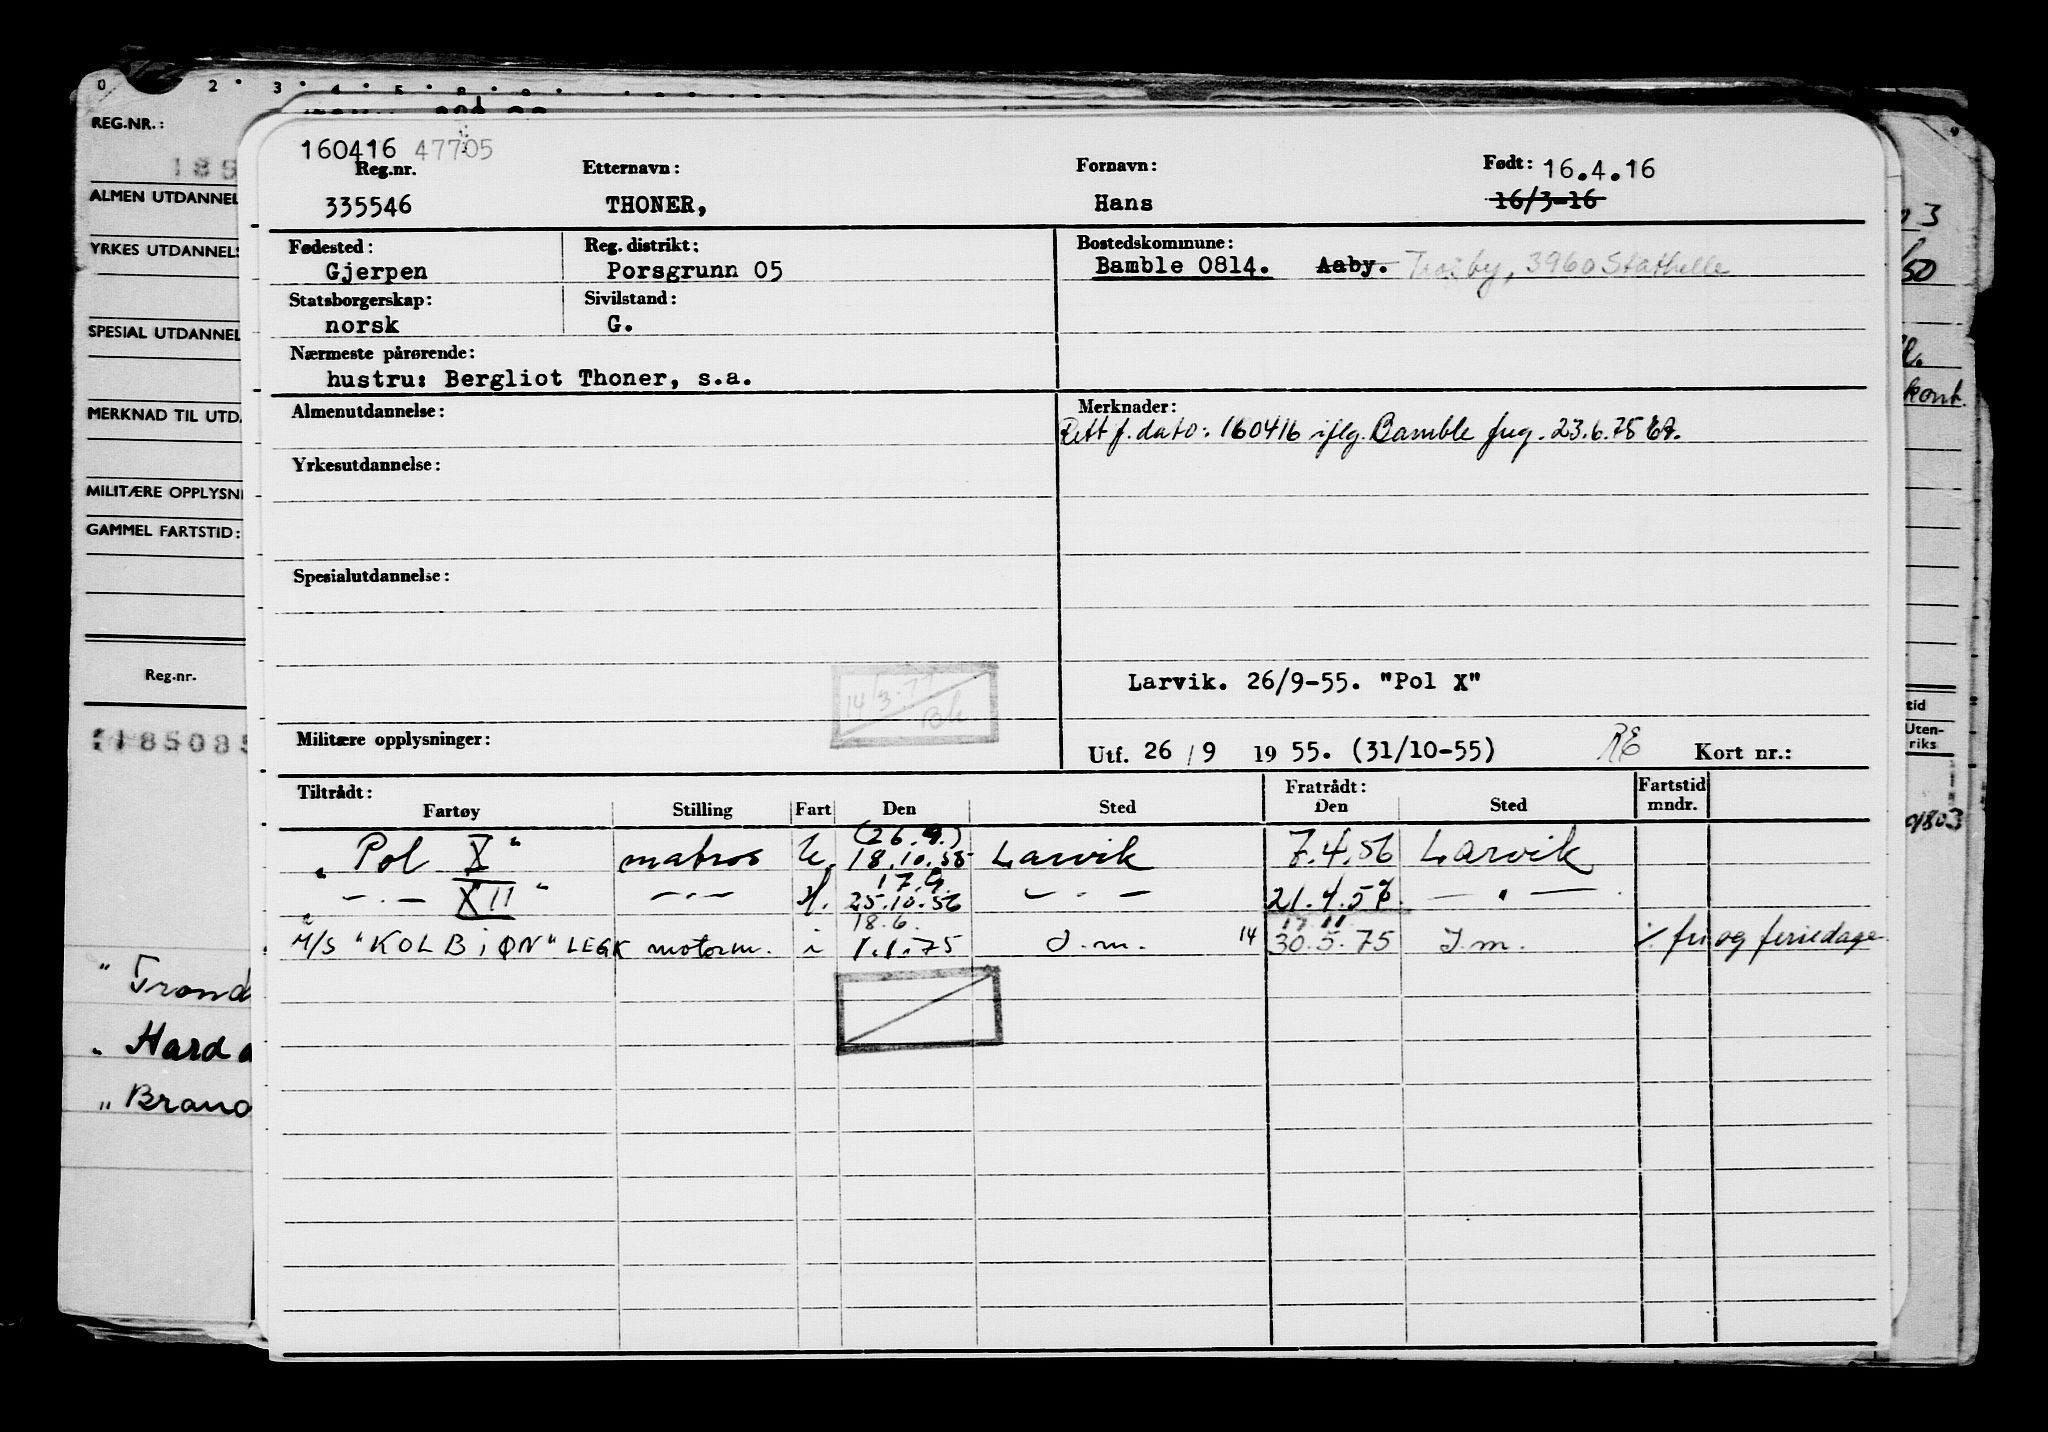 0 2 3 4 5
REG.NR.:
185
ALMEN UTDANNEL
YRKES UTDANNELS
SPESIAL UTDANNEL
MERKNAD TIL UTDA
MILITÆRE OPPLYSNI
GAMMEL FARTSTID:
Reg.nr.
185085
" Trond
" Hard
" Brand
160416 47705
Reg.nr. Etternavn: Fornavn: Født: 16.4.16
335546 THONER, Hans 16/3-16
Fødested: Reg. distrikt: Bostedskommune:
Gjerpen Porsgrunn 05 Bamble 0814. Aaby. Trosby, 3960 Stathelle
Statsborgerskap: Sivilstand:
norsk G.
Nærmeste pårørende:
hustru: Bergliot Thoner, s.a.
Almenutdannelse: Merknader:
Rett f. dato: 160416 iflg. Bamble freg. 23.6.75
Yrkesutdannelse:
Spesialutdannelse:
14/3-77
Bh.
Larvik. 26/9-55. "Pol X"
Militære opplysninger: Utf. 26 / 9 19 55. (31/10-55) RE Kort nr.:
Tiltrådt: Fratrådt: Fartstid
Fartøy Stilling Fart Den Sted Den Sted mndr.
(26.9.)
" Pol X " matros 18.10.55 Larvik 7.4.56 Larvik
17.9.
— " — XII " — " — H. 25.10.56 — " — 21.4.57 — " —
18.6. 17.11
M/S "KOLBIØN" LEGK motorm. i 1.1.75 J.m. 14 30.5.75 J.m. % fri og feriedage
3
50
kont.
tid
Uten-
riks
803